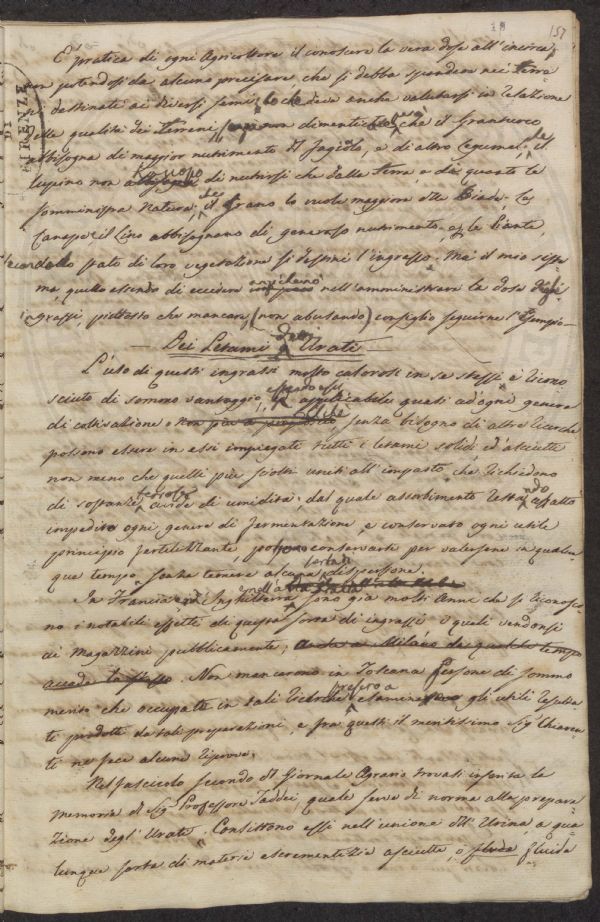 157
È pratica di ogni Agricoltore il conoscere la vera dose all'incirca,
non potendosi da alcuno precisare, che si debba spandere nei terra
destinati ai diversi semi, lo che deve anche valutarsi in relazione
alle qualità dei terreni, non dimentichi che il franturco
abbisogna di maggior nutrimento del fagiolo, e di altro legume; che il
lupino non di nutrirsi che dalla terra, e di quanto la
somministra natura che il grano lo vuole maggiore delle Biade. La
Canapa e il Lino abbisognano di generoso nutrimento, e le Piante
dallo stato di loro vegetazione si desumi l'ingrasso. Ma il mio siste
ma quello essendo di eccedere anzicheno nell'amministrare la dose degli
ingrassi, piuttosto che mancare, (non abusando) consiglio seguirne l'Esempio
Dei Letami o sieno Urati
L'uso di questi ingrassi molto calorosi in se stessi è ricono
sciuto di sommo vantaggio, essendo essi applicabile quasi ad ogni genere
di coltivazione e senza bisogno di altre ricerche
possono essere in essi impiegati tutti i letami solidi ed asciutti
non meno che quelli più sciolti uniti all'impasto che richiedono
di sostanze terrose avide di umidità, dal quale assorbimento restando affatto
impedito ogni genere di fermentazione, e conservato ogni utile
principio fertilizzante possono conservarsi per valersene in qualun
que tempo, senza temere alcuna dispersione.
In Francia, ed Inghilterra nell'alta Italia sono già molti Anni che si conosco
no i notabili effetti di questa sorta di ingrassi i quali vendonsi
ai Magazzini pubblicamente, anche a Milano da qualche tempo
accade lo stesso. Non mancarono in Toscana Persone di sommo
merito che occupate in tali ricerche esaminare gli utili resulta
ti prodotti da tali preparazioni, e fra questi il meritissimo Sig.
ti ne fece alcune riprove.
Nel fascicolo secondo del Giornale Agrario trovasi inserita la
memoria del Sig. Professore Taddei quale serve di norma alla prepara
zione degl'Urati. Consistono essi nell'unione dell'Urina, a qua
lunque sorta di materie escrementizia asciutta, o fluida fluida